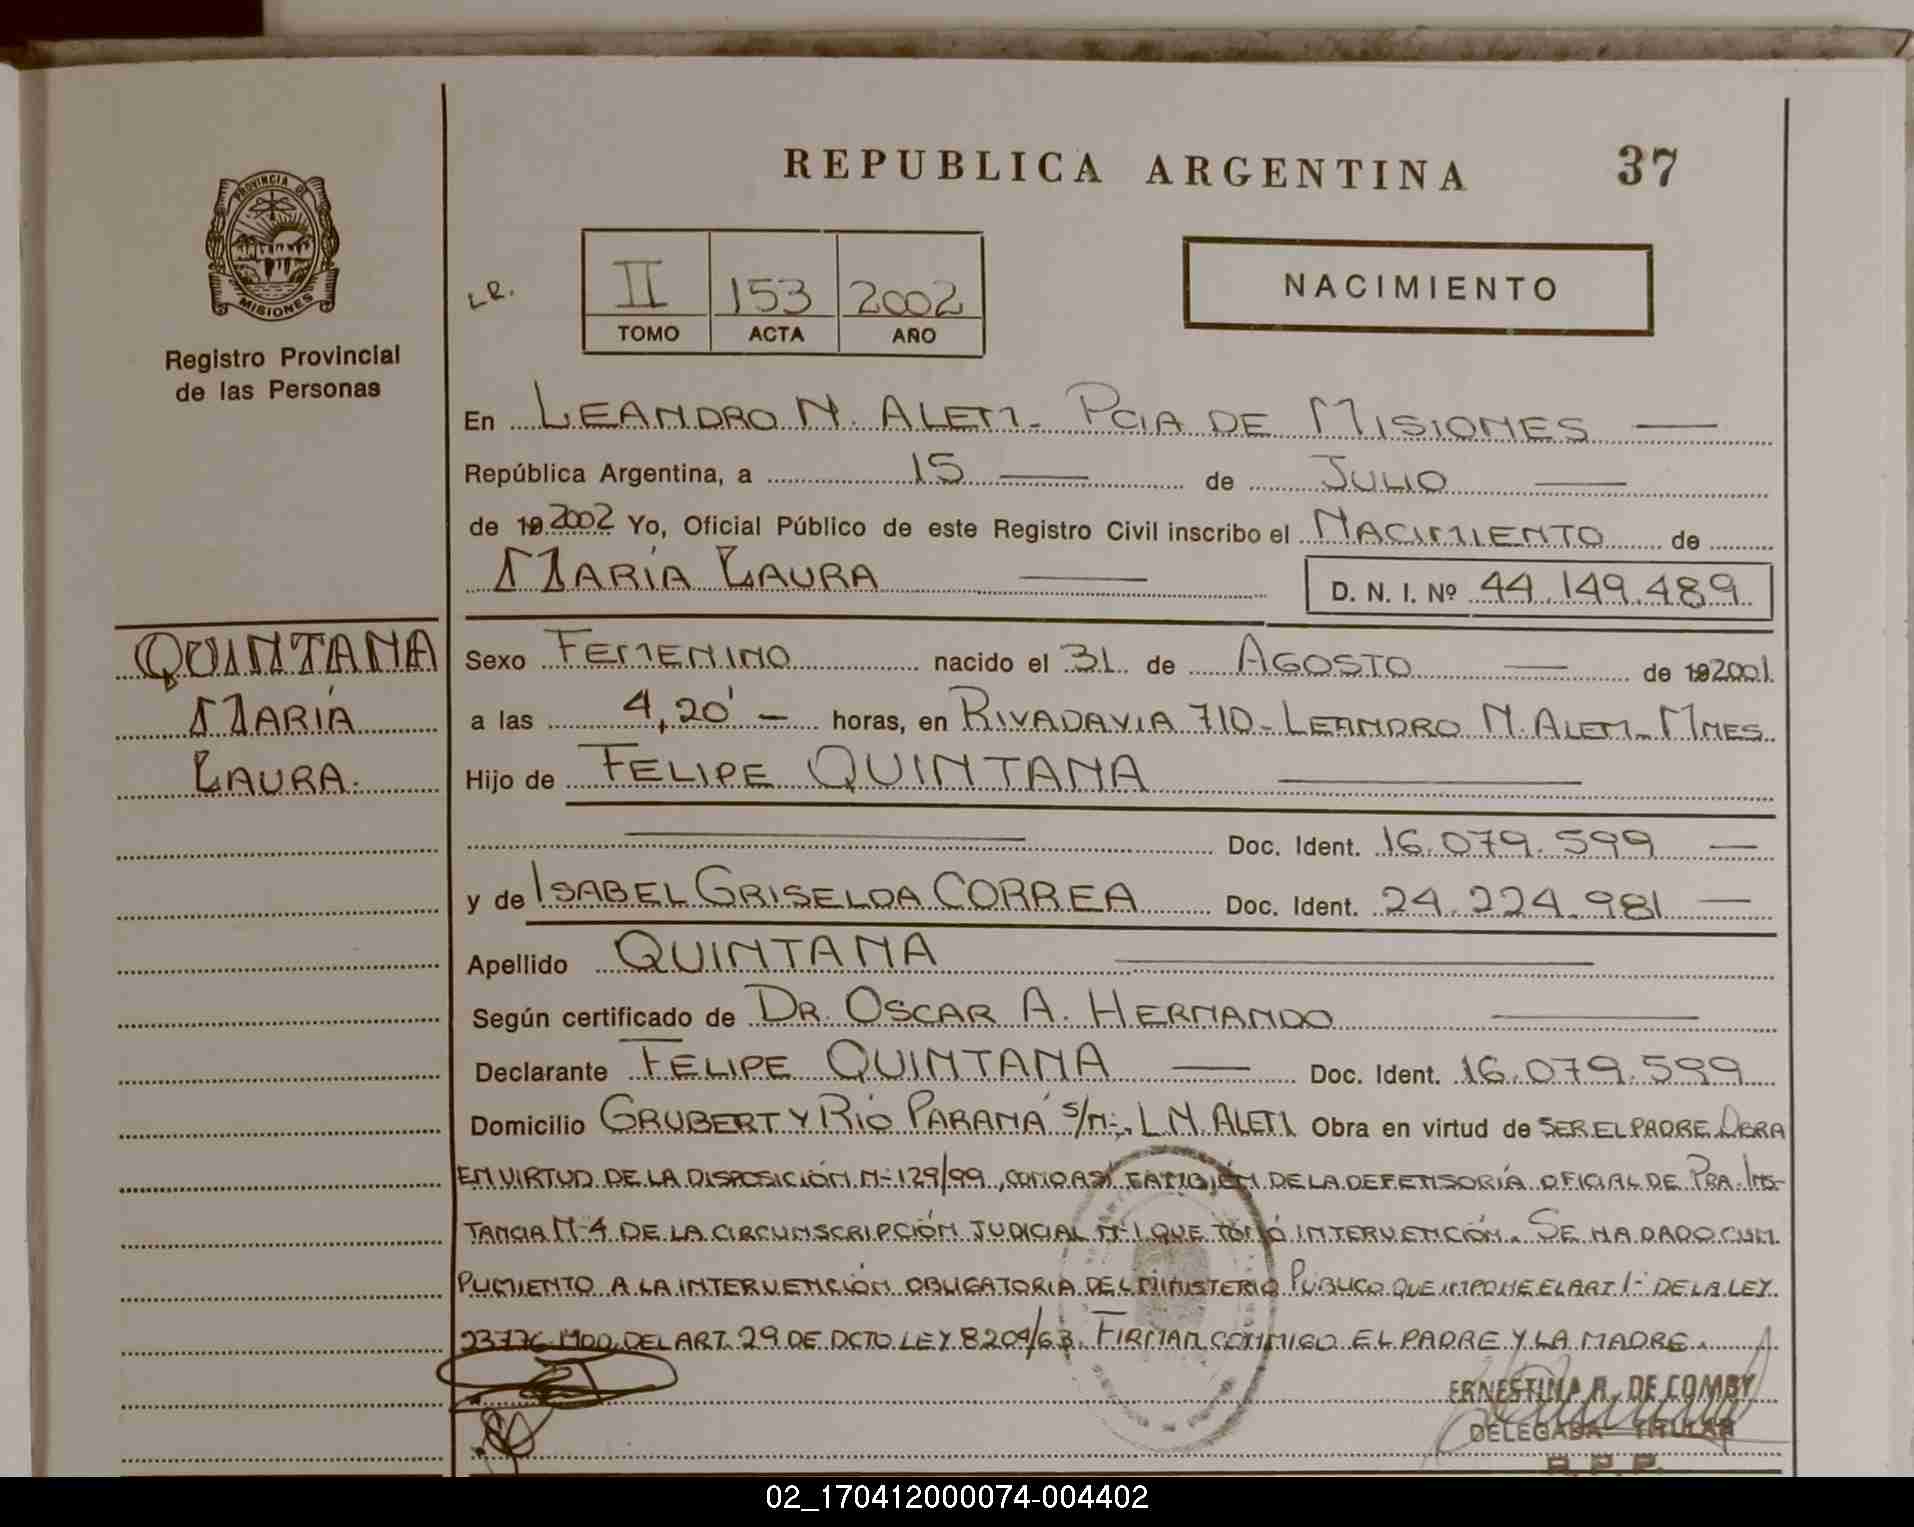 REPUBLICA ARGENTINA
37
PROVINCIA D
MISIONES
Registro Provincial
de las Personas
LR.
II 153 2002
TOMO ACTA AÑO
NACIMIENTO
En LEANDRO N. ALEM - PCIA DE MISIONES
República Argentina, a 15 de JULIO
de 19 2002 Yo, Oficial Público de este Registro Civil inscribo el NACIMIENTO de
MARÍA LAURA
D. N. I. Nº 44.149.489
QUINTANA
MARÍA
LAURA.
Sexo FEMENINO nacido el 31 de AGOSTO de 19 2001
a las 4,20' horas, en RIVADAVIA 710 - LEANDRO N. ALEM - MNES
Hijo de FELIPE QUINTANA
Doc. Ident. 16.079.599
y de ISABEL GRISELDA CORREA Doc. Ident. 24.224.981
Apellido QUINTANA
Según certificado de DR. OSCAR A. HERNANDO
Declarante FELIPE QUINTANA Doc. Ident. 16.079.599
Domicilio GRUBERT Y RÍO PARANÁ S/Nº, L N ALEM Obra en virtud de SER EL PADRE. OBRA
EN VIRTUD DE LA DISPOSICIÓN Nº 129/99, COMO ASÍ TAMBIÉN DE LA DEFENSORÍA OFICIAL DE PRA. INS-
TANCIA Nº 4 DE LA CIRCUNSCRIPCIÓN JUDICIAL Nº 1 QUE TOMÓ INTERVENCIÓN. SE HA DADO CUM
PLIMIENTO A LA INTERVENCIÓN OBLIGATORIA DEL MINISTERIO PÚBLICO QUE IMPONE EL ART 1º DE LA LEY
23776 MOD. DEL ART. 29 DE DCTO LEY 8204/63. FIRMAN CONMIGO EL PADRE Y LA MADRE.
ERNESTINA R. DE COMBY
DELEGADA TITULAR
R. P. P.
02_170412000074-004402